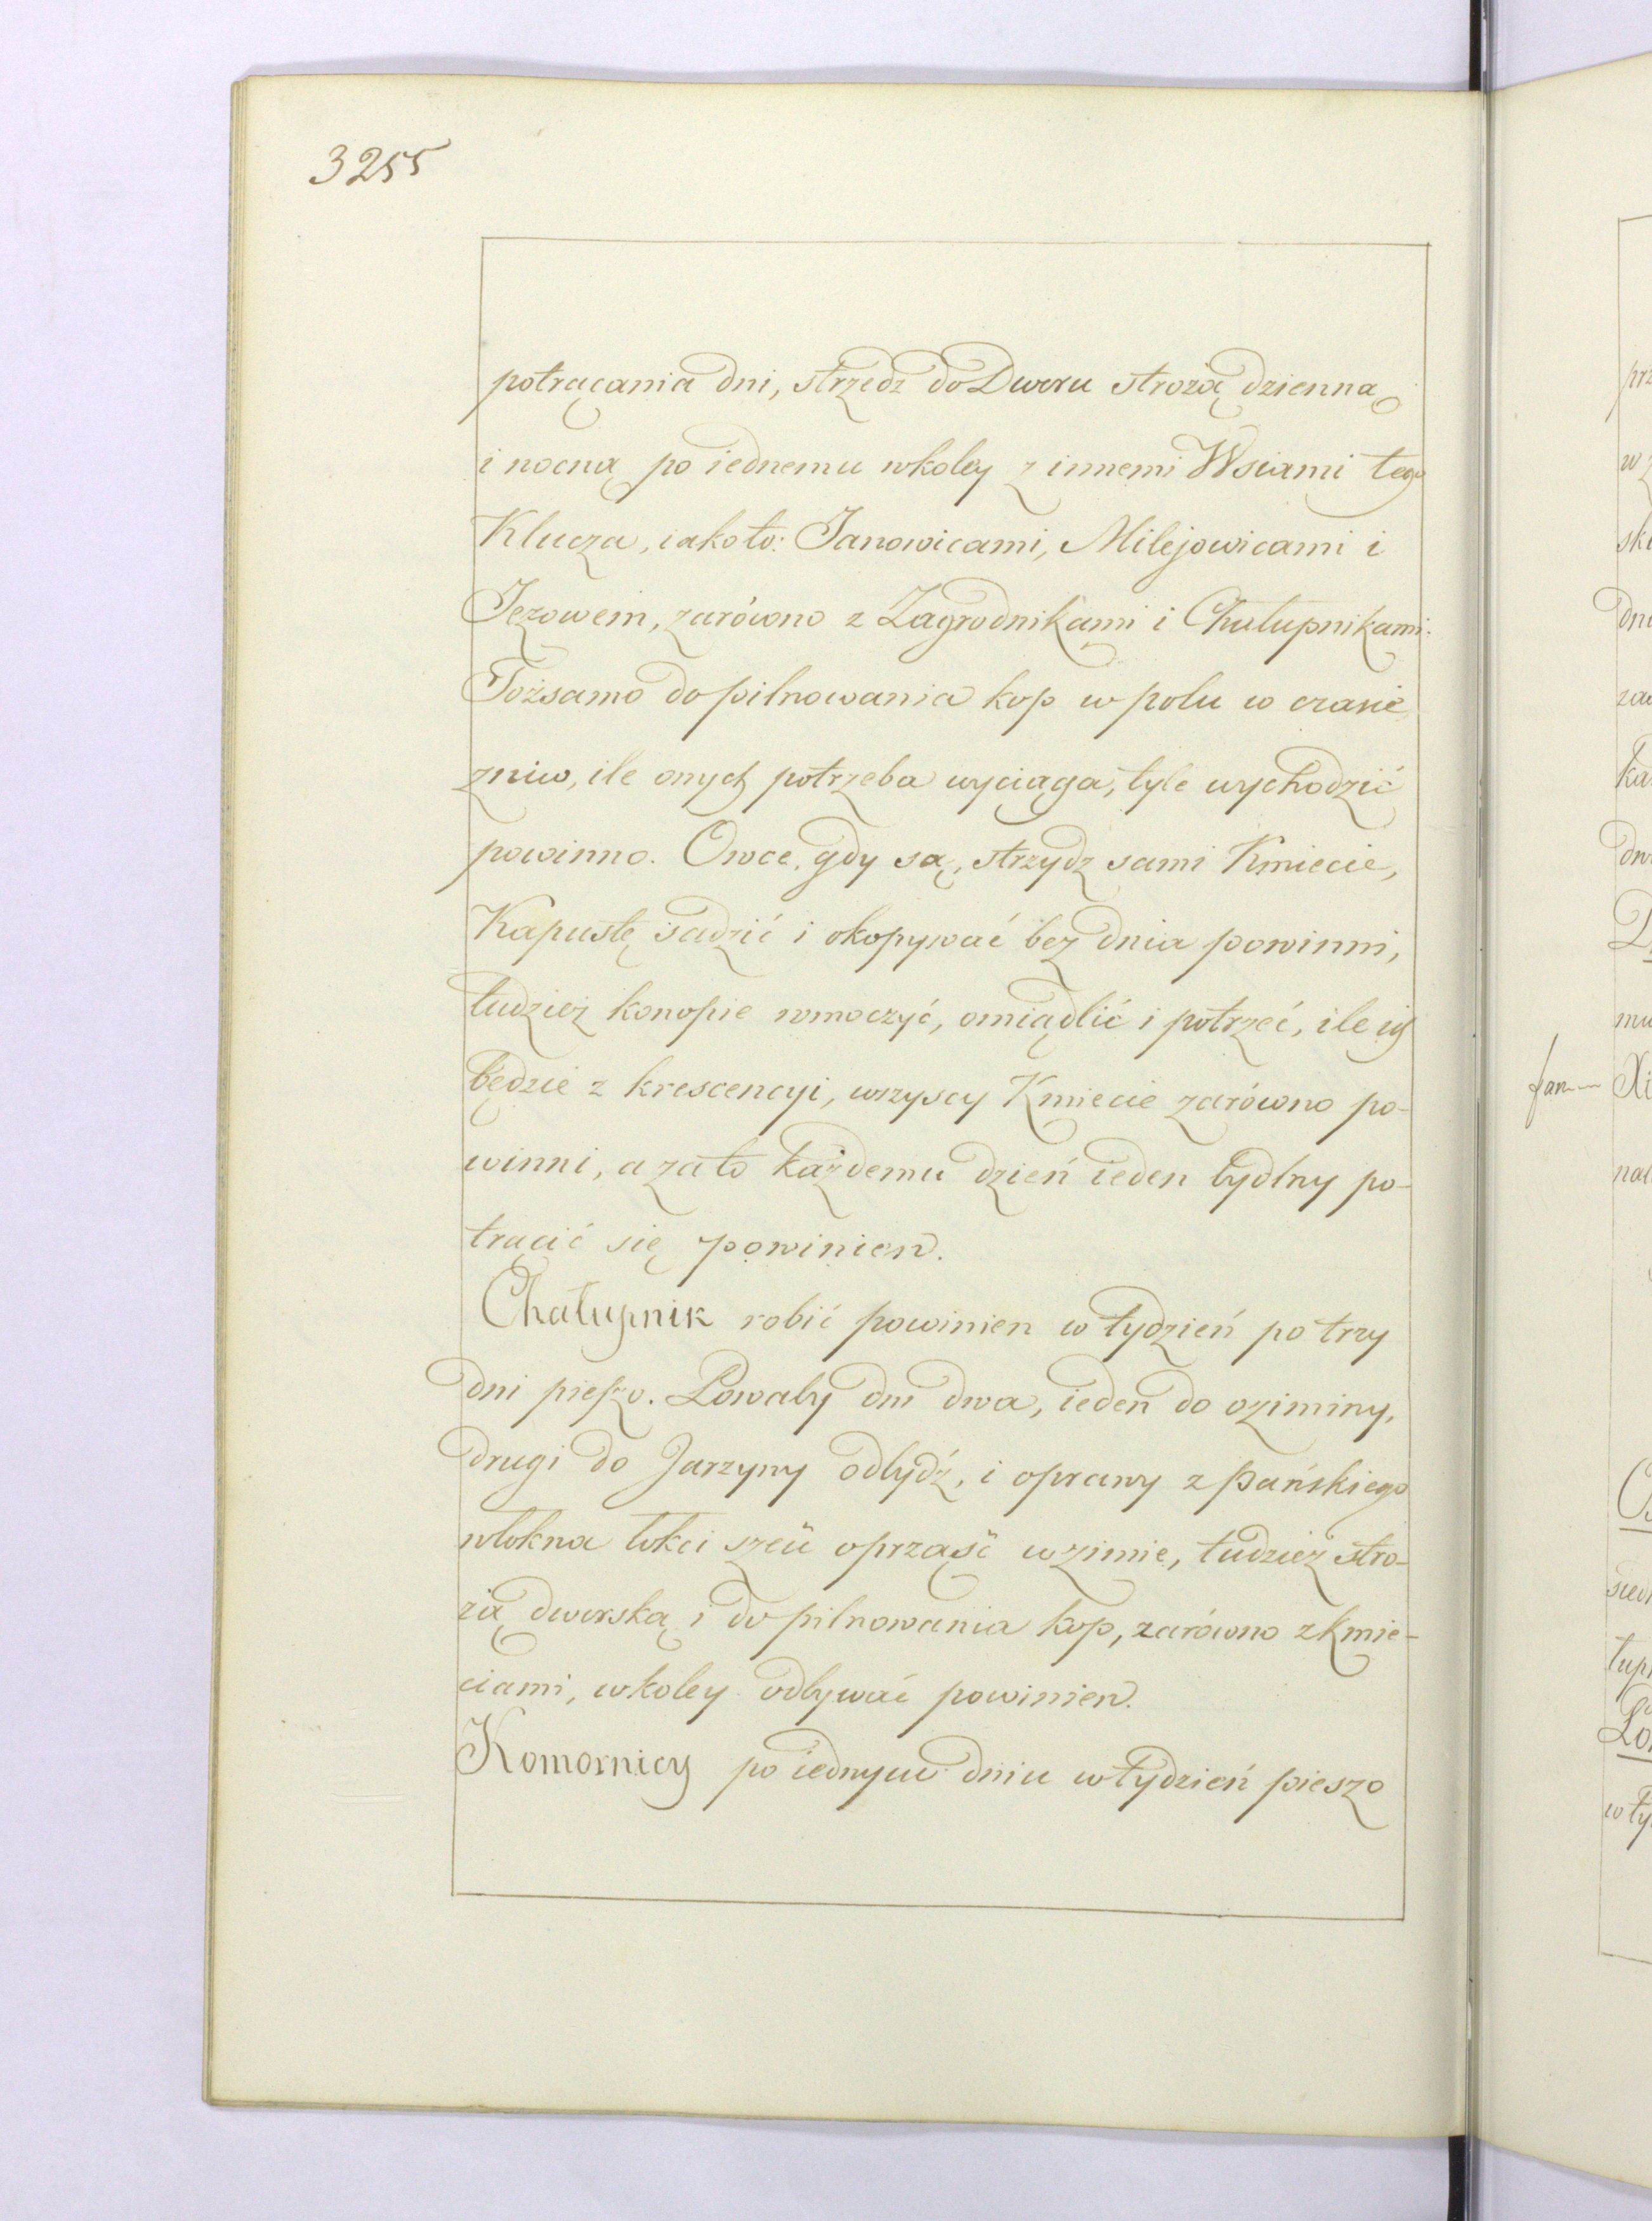 3255
potrącania dni, strzedz do Dworu strożą dzienną
i nocną po iednemu wkoley z innemi Wsiami tego
Klucza, iakoto: Janowicami, Milejowicami i
Jezowem, zarówno z Zagrodnikami i Chałupnikami.
Tożsamo do pilnowania kop w polu w czasie
zniw, ile onych potrzeba wyciąga, tyle wychodzić
powinno. Owce, gdy są, strzydz sami Kmiecie,
Kapustę sadzić i okopywać bez dnia powinni,
tudzież konopie wmoczyć, omiądlić i potrzeć, ile ich
będzie z krescencyi, wszyscy Kmiecie zarówno po-
winni, a zato każdemu dzień ieden bydlny po-
trącić się powinien.
Chałupnik robić powinien w tydzień po trzy
dni pieszo. Powaby dni dwa, ieden do oziminy,
drugi do Jarzyny odbydź, i oprawy z pańskiego
włokna łokci sześć oprząść w zimie, tudzież stro-
żą dworską i do pilnowania kop, zarówno z Kmie-
ciami, wkoley odbywać powinien.
Komornicy po iednym dniu w tydzień pieszo